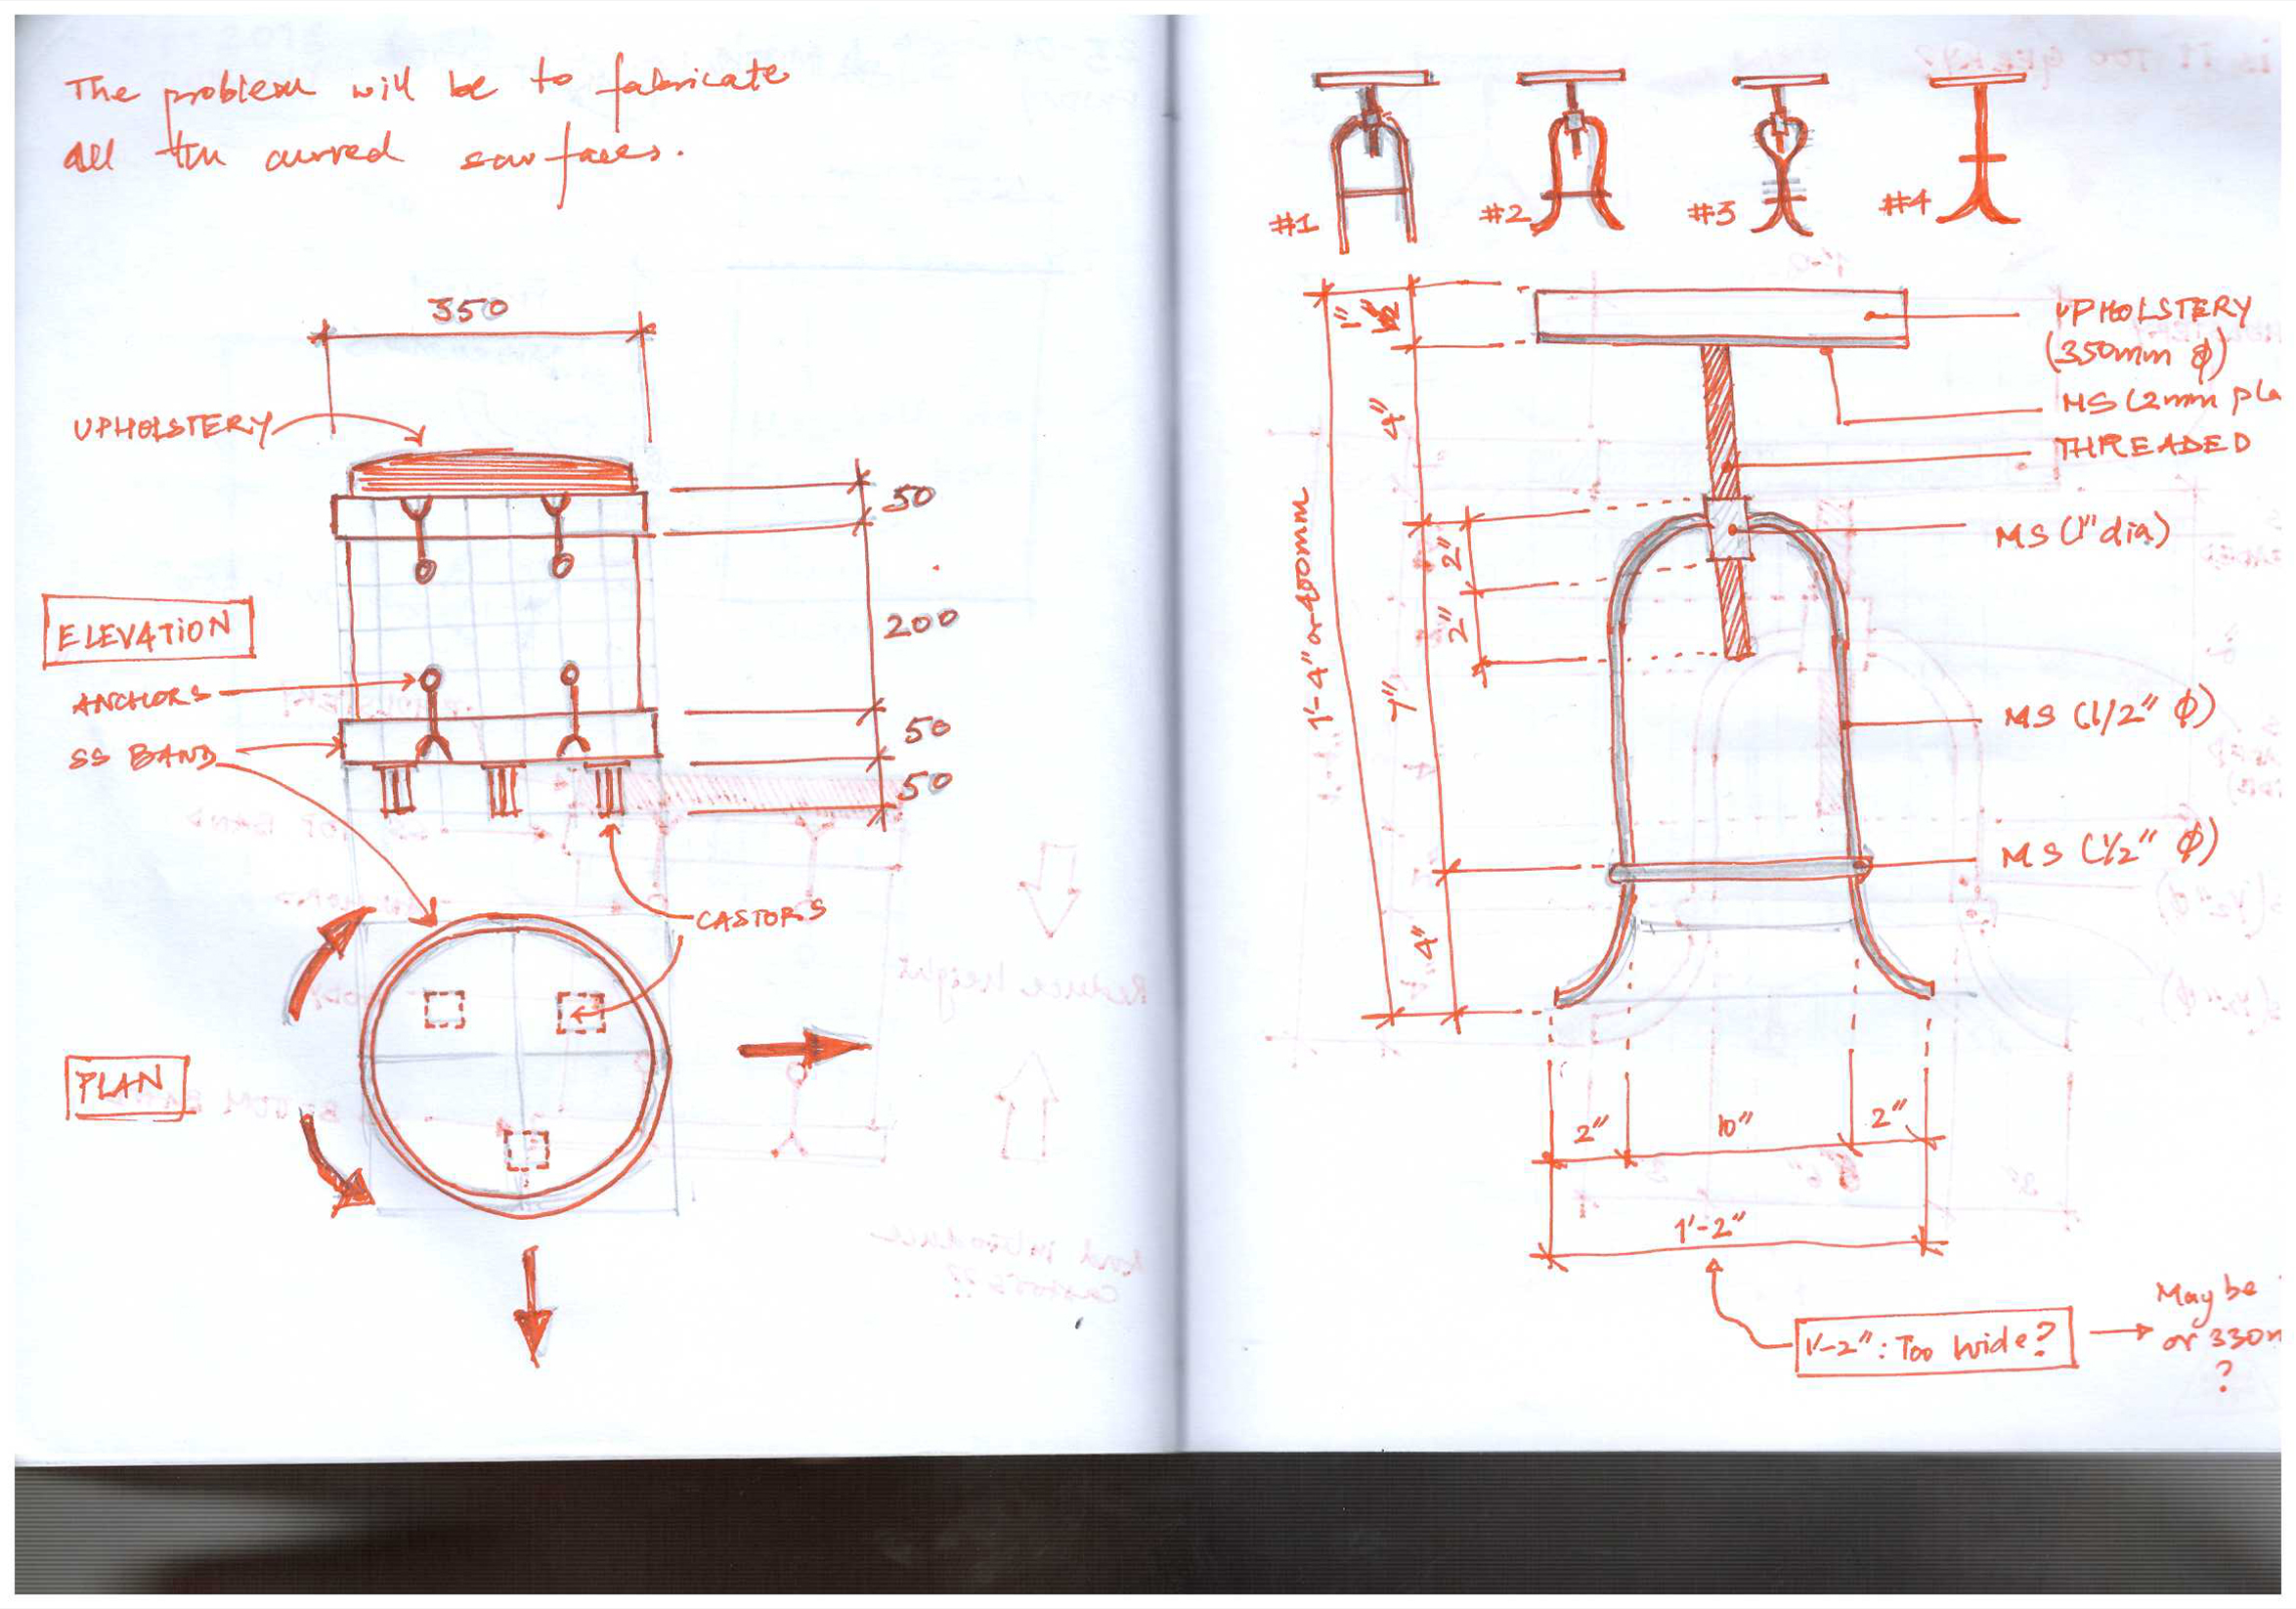 The problem will be to fabricate
all the curved surfaces.
350
UPHOLSTERY
50
200
50
50
ELEVATION
ANCHORS
SS BAND
CASTORS
PLAN
#1
#2
#3
#4
1"
4"
2"
2"
7"
4"
1'-4" or 400mm
UPHOLSTERY
(350mm ϕ)
MS (2mm pla
THREADED
MS (1" dia)
MS (1/2" ϕ)
MS (1/2" ϕ)
2" 10" 2"
1'-2"
1'-2": Too wide?
May be
or 330
?
IS IT TOO GEEKY?
Reduce height
and introduce
castors??